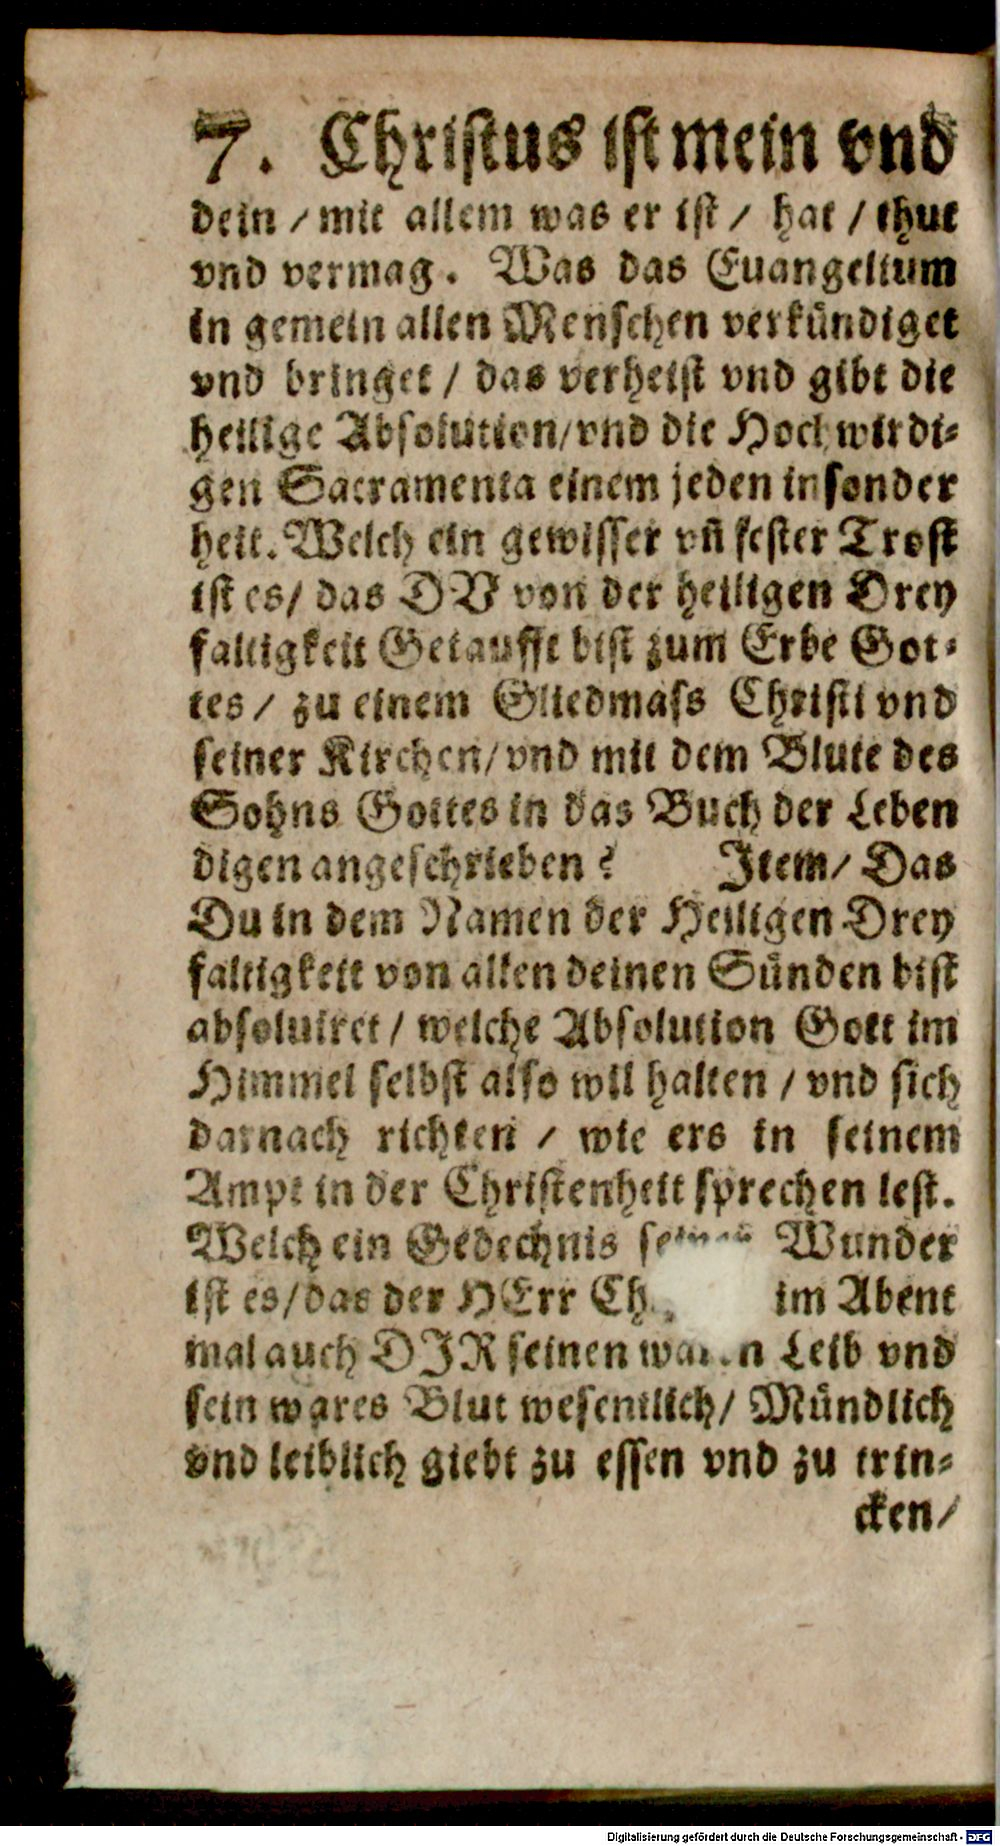 7. Christus ist mein vnd
dein / mit allem was er ist / hat / thut
vnd vermag. Was das Euangelium
in gemein allen Menschen verkündiget
vnd bringet / das verheist vnd gibt die
heilige Absolution/vnd die Hochwirdi-
gen Sacramenta einem jeden insonder
heit. Welch ein gewisser vn̄ fester Trost
ist es/ das DV von der heiligen Drey
faltigkeit Getaufft bist zum Erbe Got-
tes / zu einem Gliedmass Christi vnd
seiner Kirchen/vnd mit dem Blute des
Sohns Gottes in das Buch der Leben
digen angeschrieben? Item/ Das
Du in dem Namen der Heiligen Drey
faltigkeit von allen deinen Sünden bist
absoluiret / welche Absolution Gott im
Himmel selbst also wil halten / vnd sich
darnach richten / wie ers in seinem
Ampt in der Christenheit sprechen lest.
Welch ein Gedechnis Wunder
ist es/das der HErr im Abent
mal auch DIR seinen Leib vnd
sein wares Blut wesentlich/ Mündlich
vnd leiblich giebt zu essen vnd zu trin-
cken/
Digitalisierung gefördert durch die Deutsche Forschungsgemeinschaft - DFG